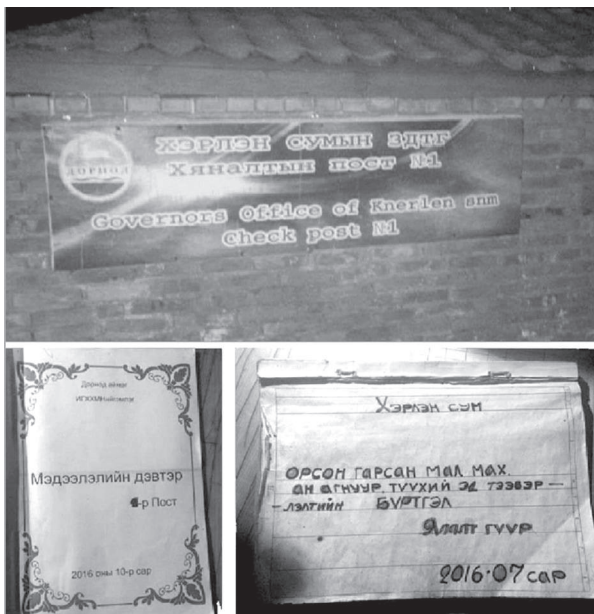 ХЭРЛЭН СУМЫН ЗДТГ
Хяналтын пост №1
ДОРНОД
Governors Office of Knerlen snm
Check post №1
Дорнод аймаг
Мэдээлэлийн дэвтэр
-р Пост
2016 оны 10-р сар
Хэрлэн сум
ОРСОН ГАРСАН МАЛ МАХ.
АН АГНУУР, ТҮҮХИЙ ЭД ТЭЭВЭР –
-ЛЭЛТИЙН БҮРТГЭЛ
Ялалт гүүр
2016·07 сар